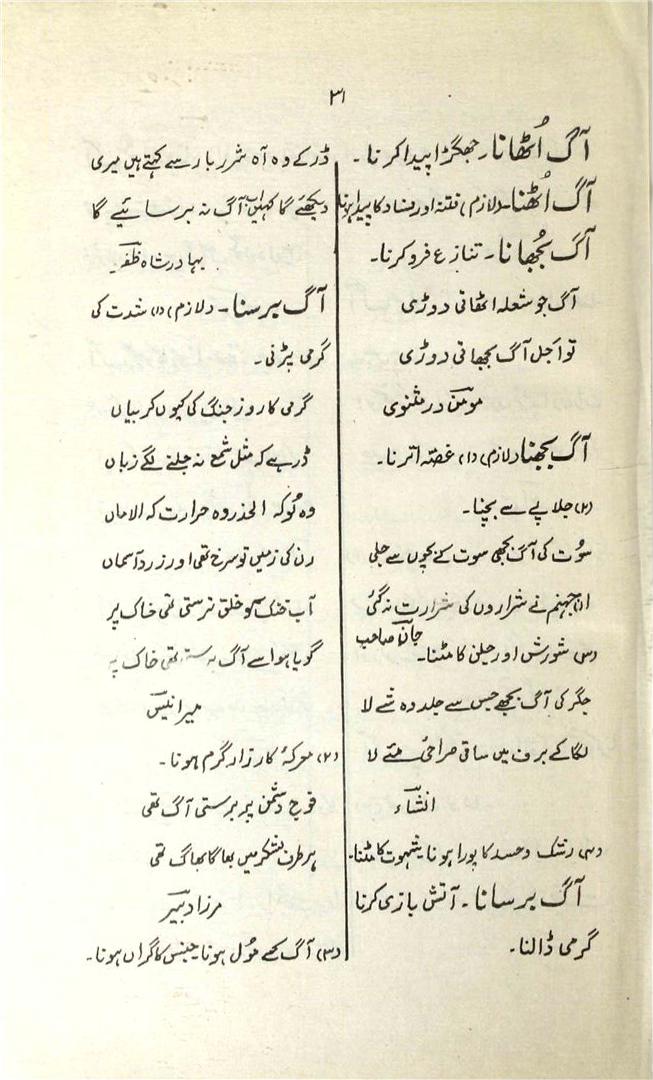 ۳۱
آگ اُٹھانا۔ جھگڑا پیدا کرنا۔
آگ اُٹھنا۔ (لازم) فتنہ اور فساد کا پیدا ہونا
آگ بُجھانا۔ تنازع فرو کرنا۔
آگ جو شعلہ اٹھاتی دوڑی
تو اَجل آگ بجھاتی دوڑی
مومنؔ در مثنوی
آگ بجھنا (لازم) (۱) غصّہ اترنا۔
(۲) جلاپے سے بچنا۔
سوُت کی آگ بجھی سوت کے بچوں سے جلی
ان جہنم نے شراروں کی شرارت نہ گئی
جانؔ صاحب
(۳) شورش اور جلن کا مٹنا۔
جگر کی آگ بجھے جس سے جلد وہ شے لا
لگا کے برف میں ساقی صراحیٔ مئے لا
انشاؔء
(۴) رشک و حسد کا پورا ہونا۔ شہوت کا مٹنا۔
آگ برسانا۔ آتش بازی کرنا
گرمی ڈالنا۔
ڈر کے وہ آہ شرر بار سے کہتے ہیں میری
دیکھئے گا کہیں اب آگ نہ برسائیے گا
بہادر شاہ ظفرؔ
آگ برسنا۔ (لازم) (۱) شدت کی
گرمی پڑنی۔
گرمی کا روز جنگ کی کیوں کر بیاں
ڈر ہے کہ مثل شمع نہ جلنے لگے زباں
وہ لُو کہ الحذر وہ حرارت کہ الاماں
رن کی زمیں تو سرخ تھی اور زرد آسماں
آب خنک کو خلق ترستی تھی خاک پر
گویا ہوا سے آگ برستی تھی خاک پر
میر انیسؔ
(۲) معرکۂ کارزار گرم ہونا۔
فوج دشمن پر برستی آگ تھی
ہر طرف لشکر میں بھاگا بھاگ تھی
مرزا دبیرؔ
(۳) آگ کے موُل ہونا۔ جنس کا گراں ہونا۔